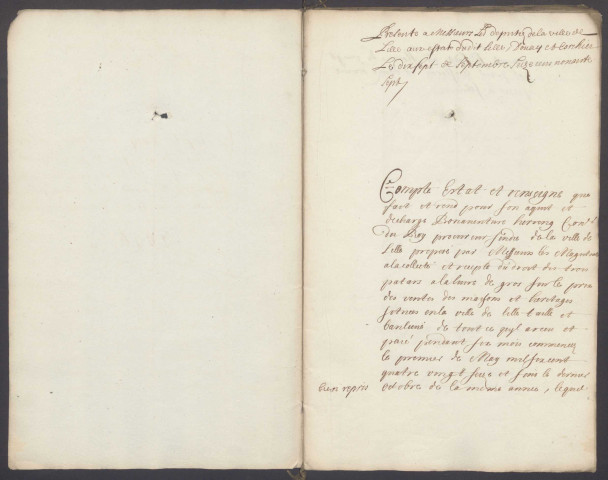 Presenté a Messieurs Les deputéz de la ville de
Lille aux estats dudit Lille, Douay et Orchies
Le dix sept de Septembre seize cens nonante
sept
Compte Estat et renseigne que
fait et rend pour son aquit et
decharge Bonaventure herreng Con.er
du Roy procureur sindic de la ville de
Lille preposé par Messieurs les Magistrats
a la collecte et recepte du droit des trois
patars a la livre de gros sur le prix
des ventes des maisons et heritages
situez en la ville de Lille taille et
banlieue de tout ce qu'il a receu et
payé pendant six mois commencez
le premier de May mil six cent
quatre vingt seize et finis le dernier
octobre de la meme année, lequel